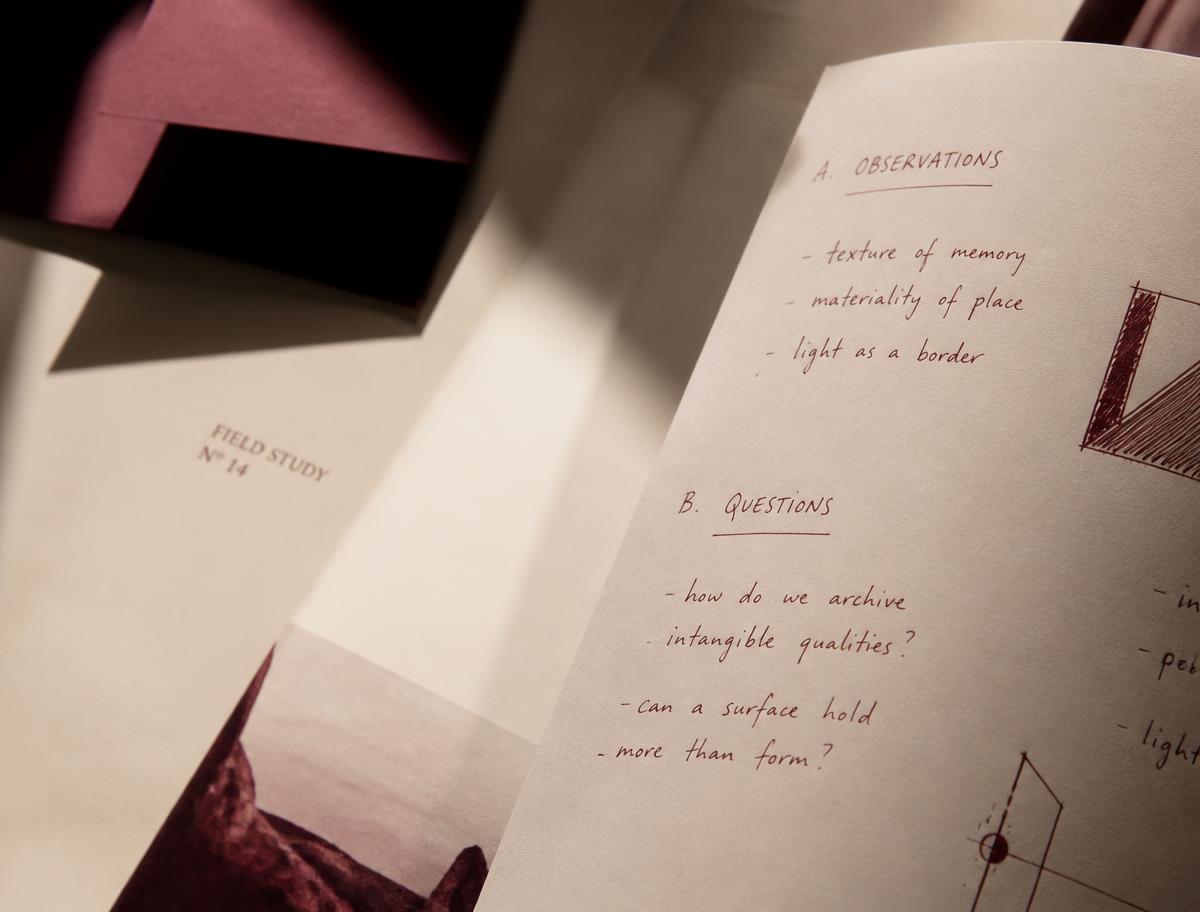 FIELD STUDY
Nº 14
A. OBSERVATIONS
- texture of memory
- materiality of place
- light as a border
B. QUESTIONS
- how do we archive
- intangible qualities?
- can a surface hold
- more than form?
- light